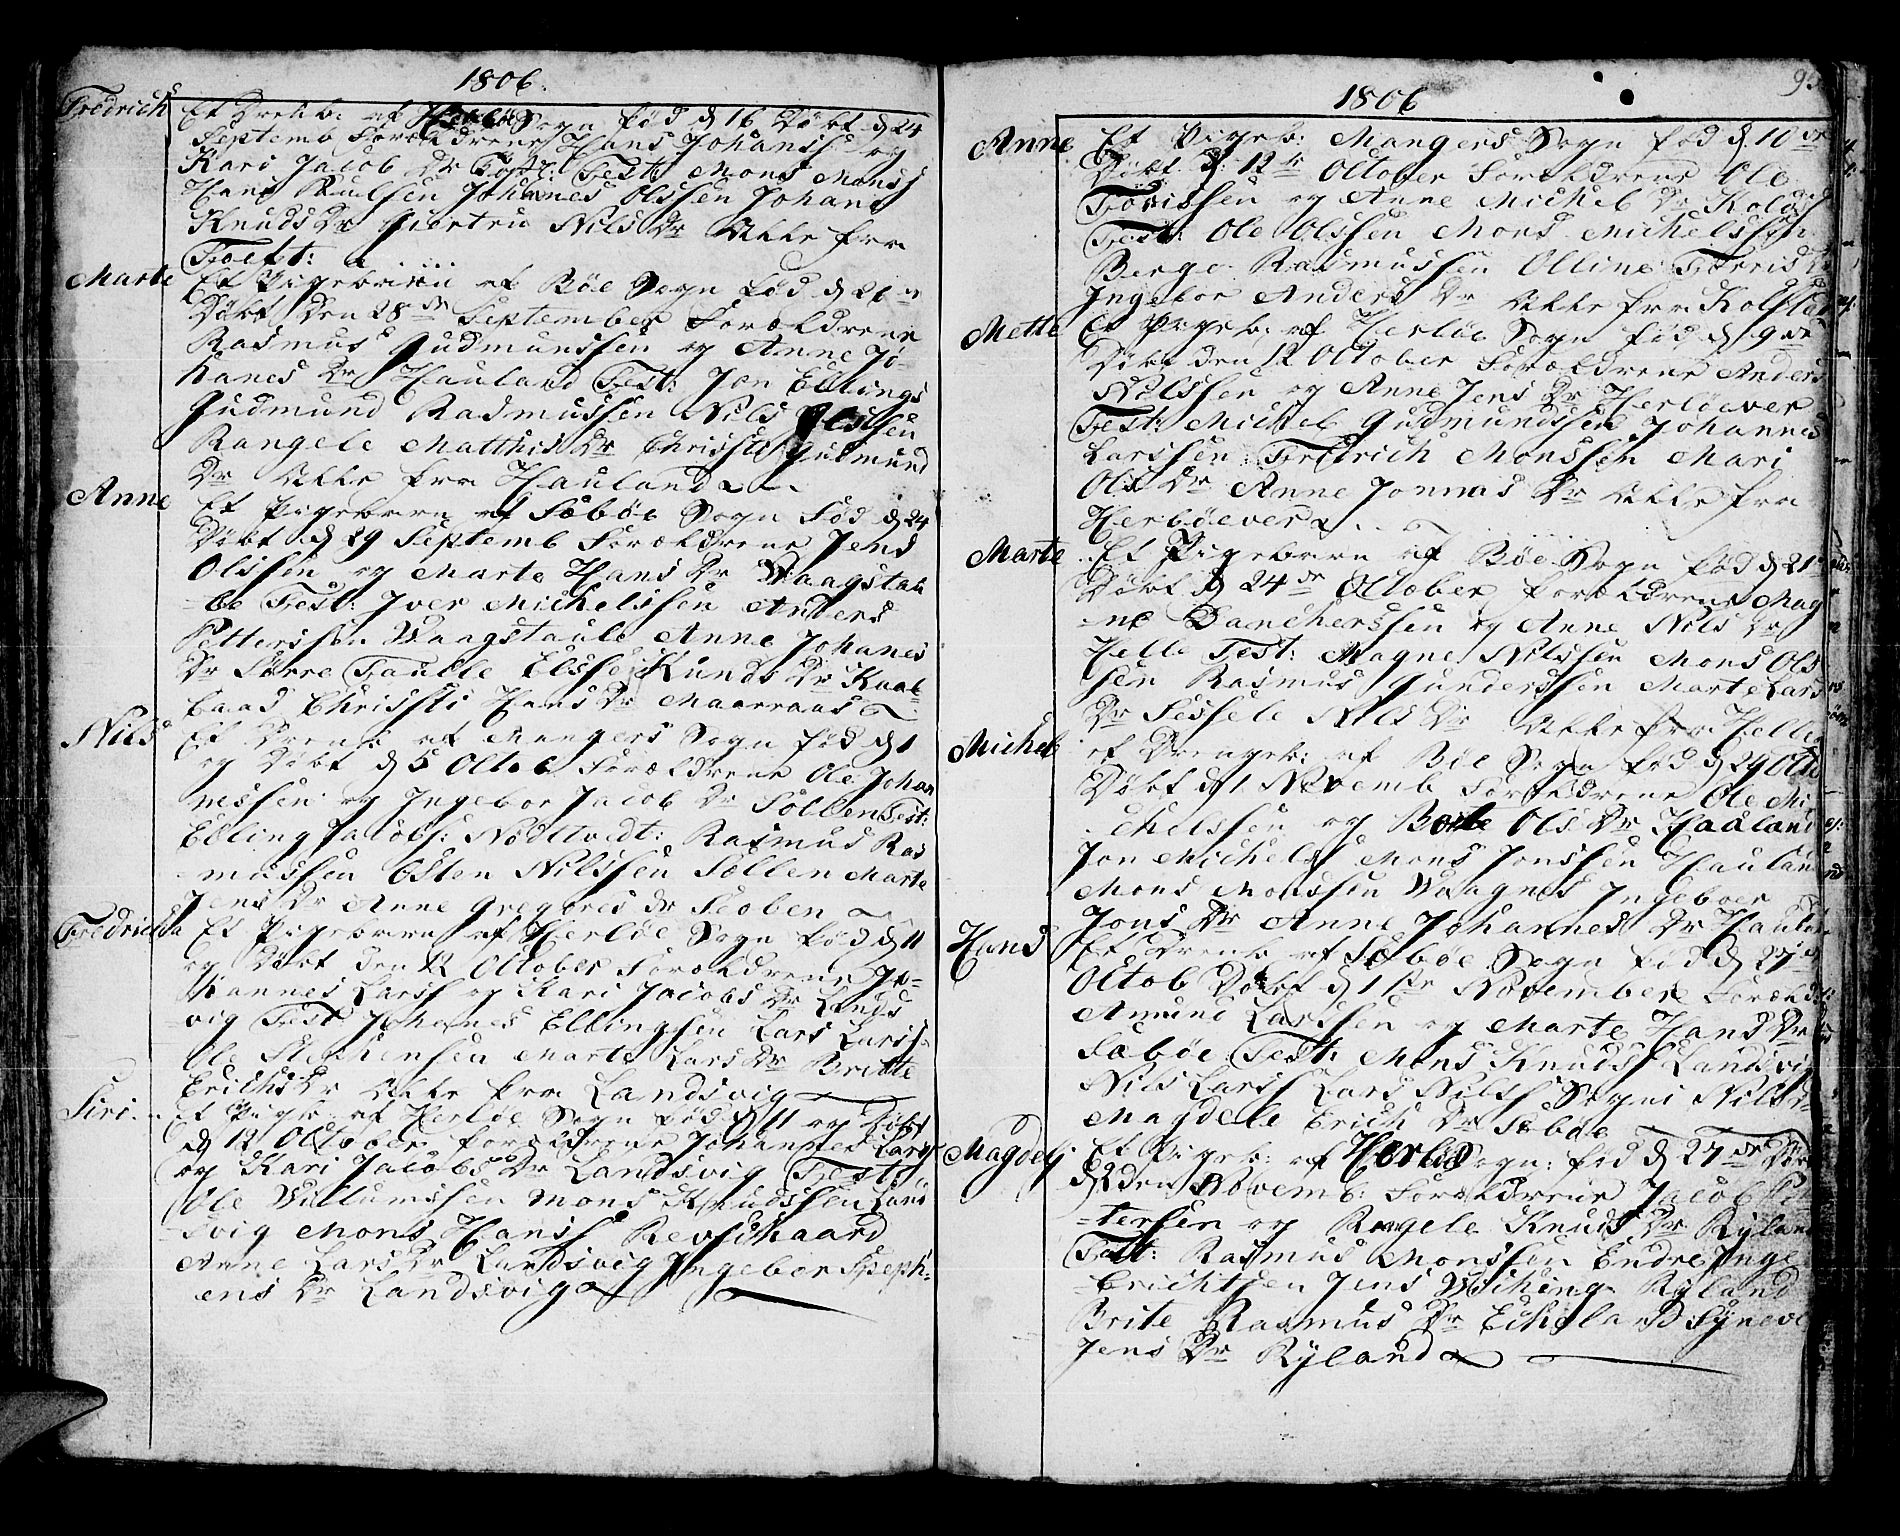 1806.
Fredrich
Et Drekb: af Herløe Sogn fød d 16 Døbt d 24
Septemb Forældrene Hans Johans og
Kari Jacob Dr Test: Mons Mons
Hans Poulsen Johanes Olssen Johans
Knuds Dr Giertru Nils Dr Alle fra
Toeft:
Marte
Et Pigebarn af Bøe Sogn fød d 26
Døbt Den 28de September Forældrene
Rasmus Gudmunssen og Anne Jo-
hanes Dr Hauland Test: Jon Ellings
Gudmund Rasmussen Nils Olssen
Rangele Matthis Dr Christi Gudmund
Dr Alle fra Hauland
Anne
Et Pigebarn af Sæbøe Sogn Fød d 24
Døbt d 29 Septemb Forældrene Jens
Olssen og Marte Hans Dr Waagstau
le Test: Iver Michelssen Anders
Petterssen Waagstaule Anne Johanes
Dr Større Taulle Elsse Knuds Dr
Christi Hans Dr Maaraas
Nils
Et Dreng af Mangers Sogn fød d 1
og Døbt d 5 Octob Forældrene Ole Johan
nessen og Ingebor Jacob Dr Söllen Test:
Elling Jacobs: Nödtvedt: Rasmus Ras
mussen Östen Nilssen Söllen Marte
Jens Dr Anne Gregoris dr Scoben
Fredricha
Et Pigebarn af Herløe Sogn fød d 11
og Døbt den 12 Octobr Forældrene Jo-
hannes Larss og Kari Jacobs Dr Lands
vig Test: Johanes Ellingsen Lars Larss
Ole Stephensen Marte Lars Dr Britte
Erichs Dr Alle fra Landsvig
Siri.
Et Pigb: af Herløe Sogn fød d 11 og Døbt
d 12 Octobr Forældrene Johannes Larss
og Kari Jacobs Dr Landsvig Test
Ole Willumssen Mons Knudssen Lands
vig Mons Hanss
Anne Lars Dr Landsvig Ingebor Steph-
ens Dr Landsvig
1806
Anne
Et Pigeb: Mangers Sogn fød d 10de
Døbt d. 12te October Forældrene Ole
Tørrissen og Anne Michel Dr Kolds
Test: Ole Olssen Mons Michelssen
Berge Rasmussen Olline Torris Dr
Ingebor Anders Dr Alle fra
Mette
Et Pigeb: af Herløe Sogn fød d 9de
Døbt den 12 October Forældrene Anders
Nilssen og Anne Jens Dr Herløever
Test: Michel Gudmundssen Johannes
Larssen Fredrich Monssen Mari
Ols Dr Anne Jonnas Dr Alle fra
Herløever
Marte
Et Pigebarn af Bøe Sogn fød d 21
Døbt d 24de October Forældrene Mag
ne Danckerssen og Anne Nils Dr
Helle Test: Magne Nilssen Mons Ols
sen Rasmus Gunderssen Marte Lars
Dr Sessele Nils Dr Alle fra Helle
Michel
et Drengeb: af Bøe Sogn fød d 29 Octo
Døbt d 1 Novemb Forældrene Ole Mi
chelssen og Ols Dr Haaland
Jon Michels Mons Jonssen Haulan
Mons Monssen Waagnes Ingeboer
Jons Dr Anne Johannes Dr Haulan
Hans
Et Drenb af Sæbøe Sogn fød d 27
Octob Døbt d 1ste November Foræld
Amund Larssen og Marte Hans Dr
Sæbøe Test: Mons Knuds Landsvig
Nils Larss Lars Nilss Sogni Nils
Magdele Erich Dr Sæbøe
Magdeli
Et Pigeb: af Herløe Sogn: fød d 27de Døbt
d 2den Novemb: Forældrene Jacob Pet
tersen og Rangele Knuds Dr Ryland
Test: Rasmus Monssen Endre Inge
Erichtsen Jens Wiching Ryland
Brite Rasmus Dr Echeland Syneve
Jens Dr Ryland